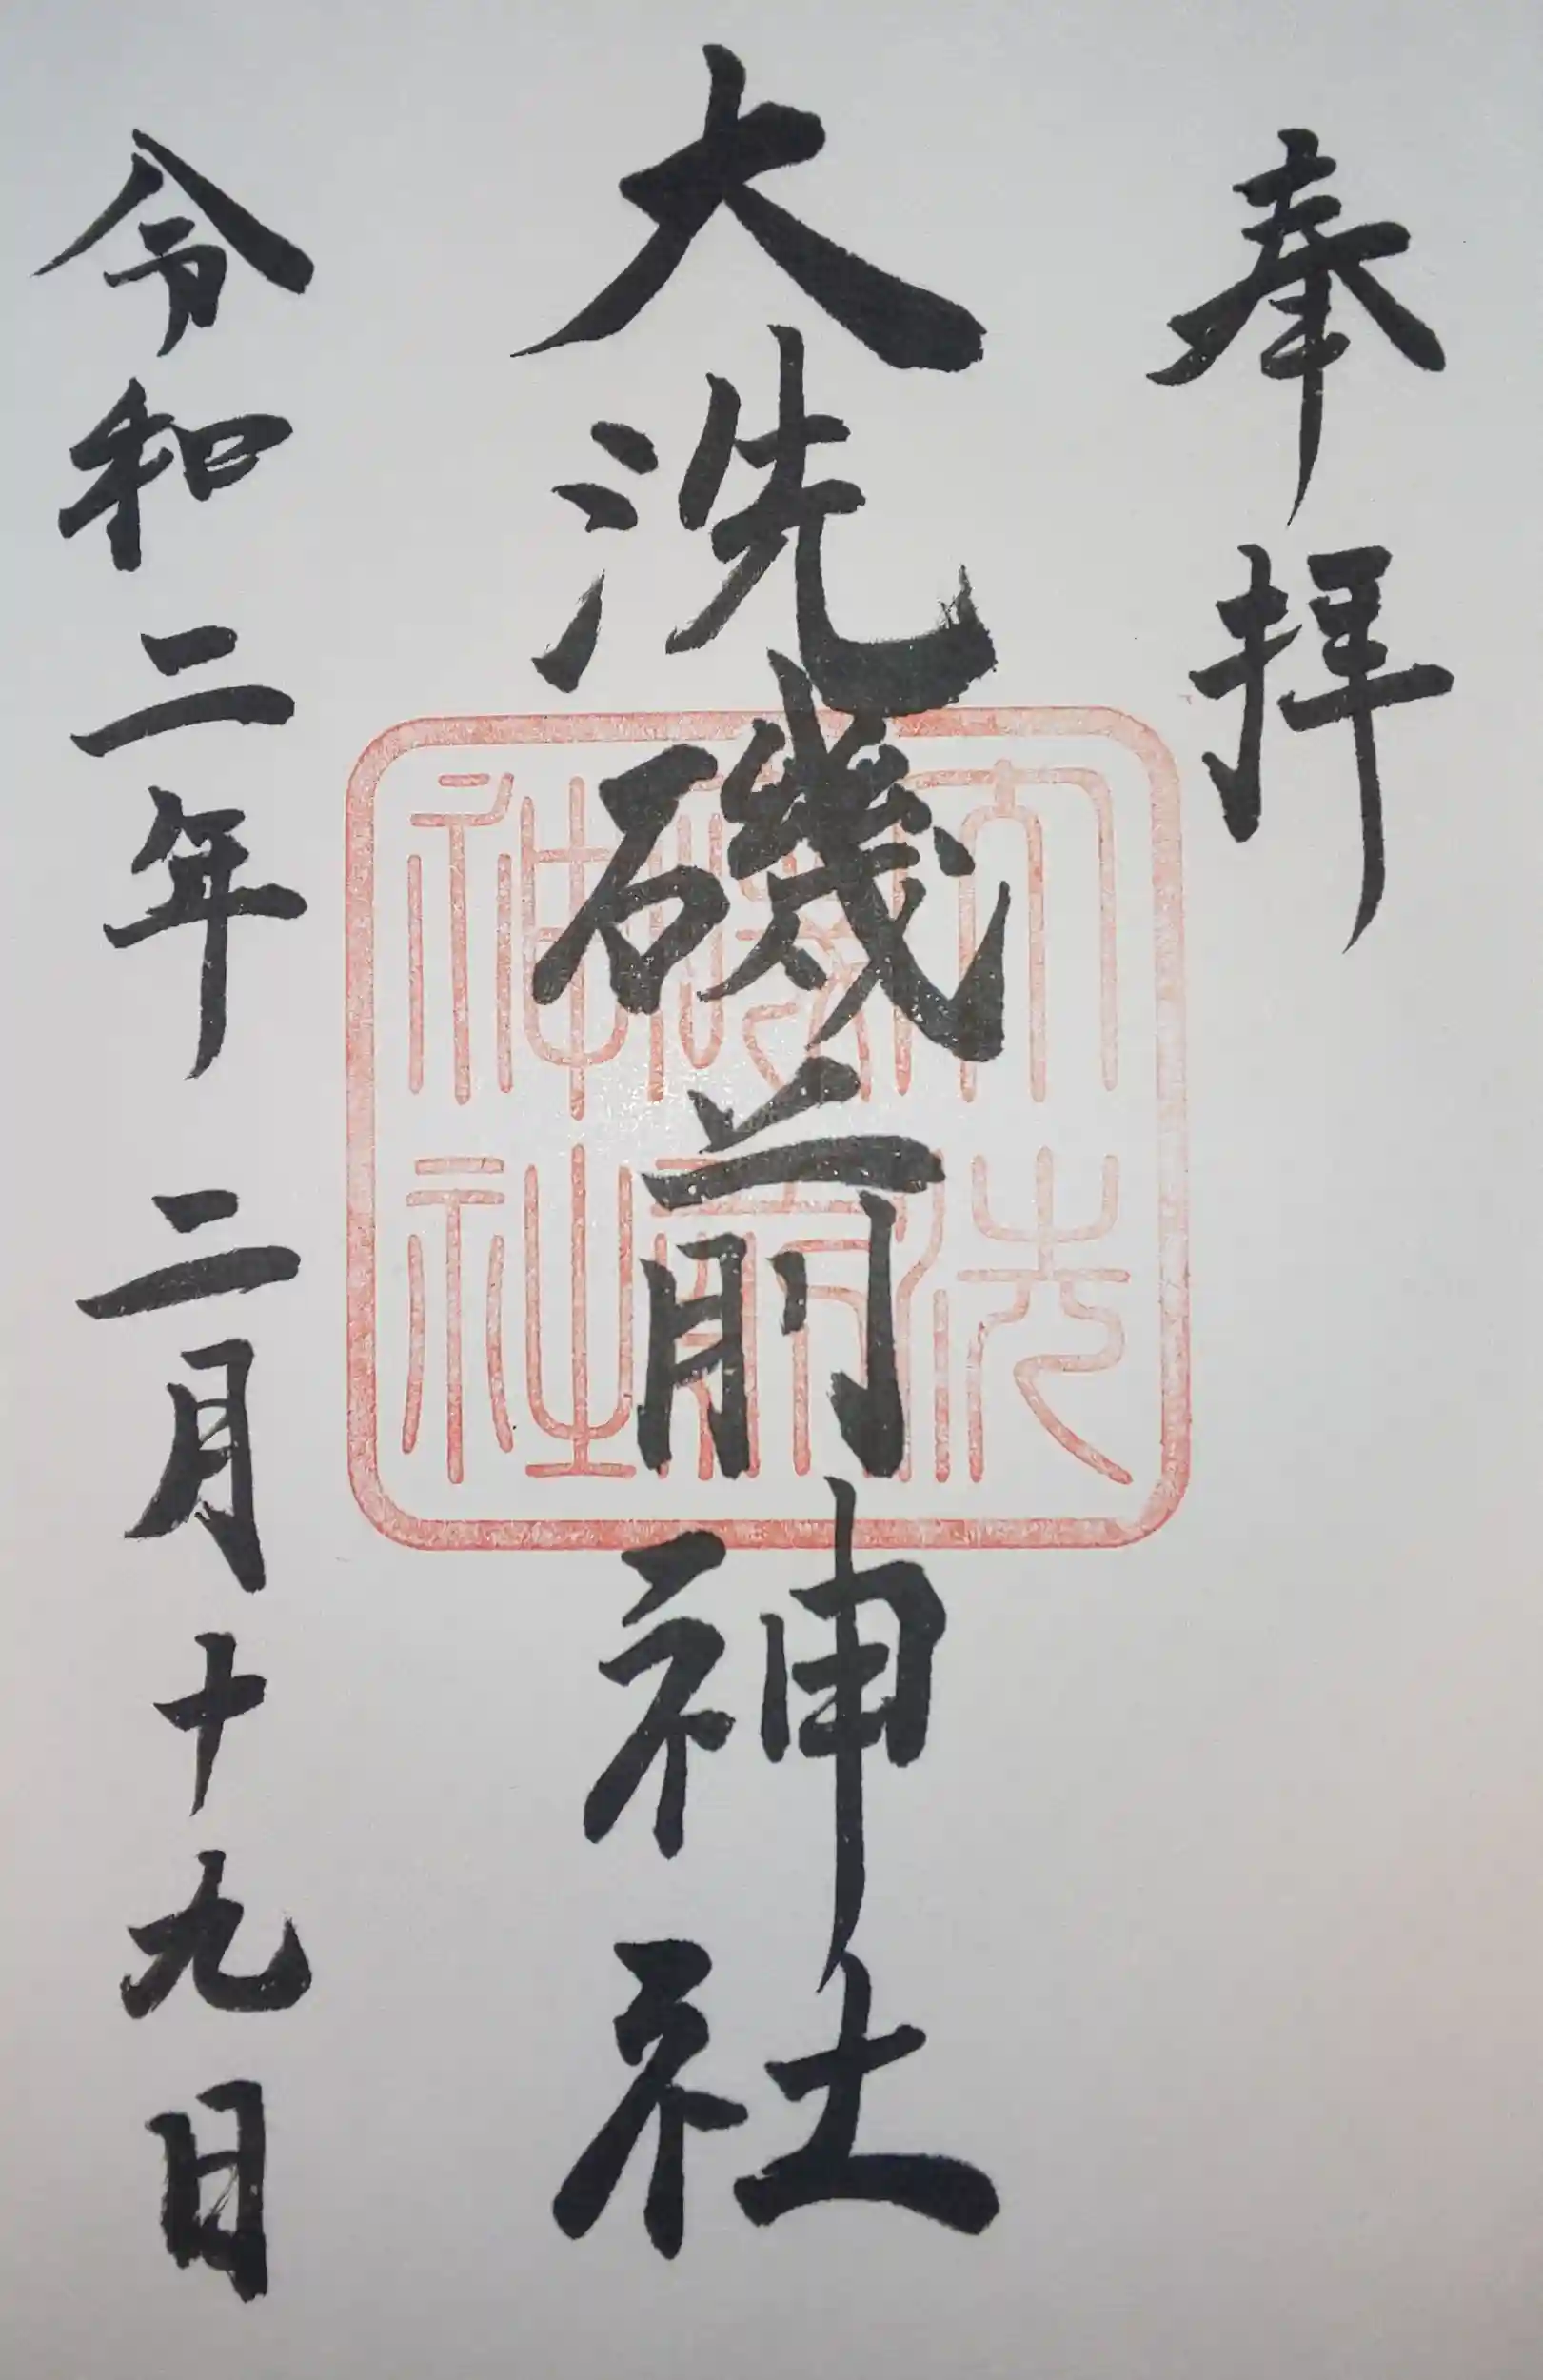 奉拝
大洗磯前神社
大洗磯前神社
令和二年 二月十九日